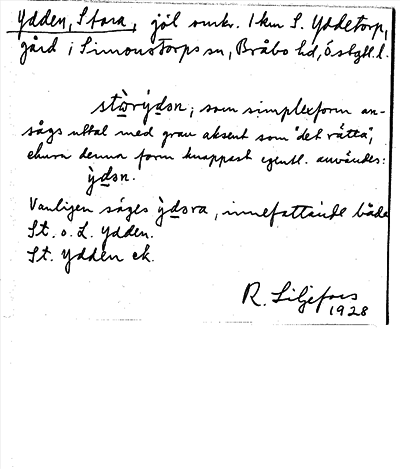 Ydden, Stora, sjöl omkr. 1 km S. Yddetorp,
gård i Simonstorps sn, Bråbo hd, Östgtl. l.
stòrýdən; som simplexform an-
sågs uttal med grav aksent som "det rätta",
ehuru denna form knappast egentl. användes:
ỳdən.
Vanligen säges ỳdəra, innefattande både
St. o. L. Ydden.
St. Ydden ek.
R. Liljefors
1928